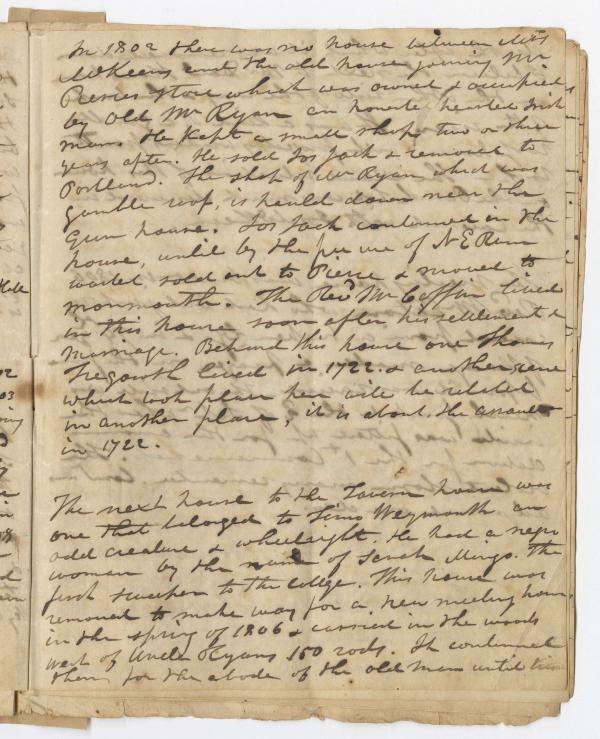 In 1802 there was no house between Mrs
McKeens and the old house joining Mr
Pierces store which was owned & occupied
by old Mr Ryan an honest hearted Irish
man. He kept a small shop two or three
years after. He sold Jos Jack & removed to
Portland. The shop of Mr Ryan which was
gamble roof, is hauld down near the
Gun house. Jos Jack continued in the
house, until by the of N E Rum
sold out to Pierce & moved to
Monmouth. The Revd Mr Coffin lived
in this house soon after his settlement &
Marriage. Behind this house one Thomas
Tregowth lived in 1722. & another scene
which took place here will be related
in another place, it is about the assault
in 1722.
The next house to the Tavern house was
one that belonged to Simo Weymouth an
odd creature & wheelright. He had a negro
woman by the name of Sarah Mingo. The
first sweeper to the College. This house was
removed to make way for a new meeting house
in the spring of 1806 & carried in the woods
west of Uncle Ryans 150 rods. It continued
there for the abode of the old man until